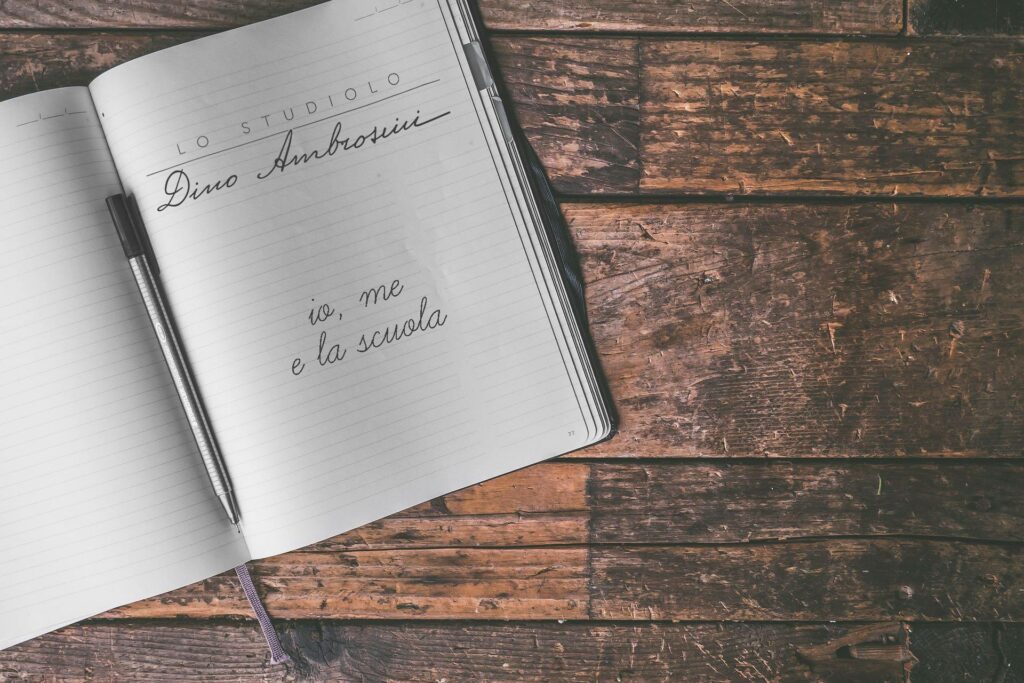 LO STUDIOLO
Dino Ambrosini
io, me
e la scuola
77